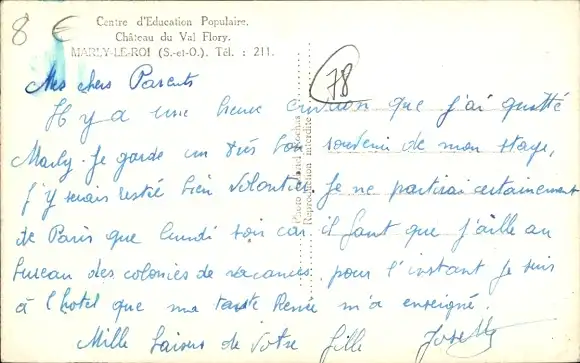 8 €
Centre d'Education Populaire.
Château du Val Flory.
MARLY-LE-ROI (S.-et-O.). Tél. : 211.
78
Mes chers Parents
Il y a une heure environ que j'ai quitté
Marly. Je garde un très bon souvenir de mon stage,
j'y serais resté bien volontier. Je ne partirai certainement
de Paris que lundi soir car il faut que j'aille au
bureau des colonies de vacances pour l'instant je suis
à l'hotel que ma tante Renée m'a enseigné.
Mille baisers de votre fille Josette
Reproduction interdite